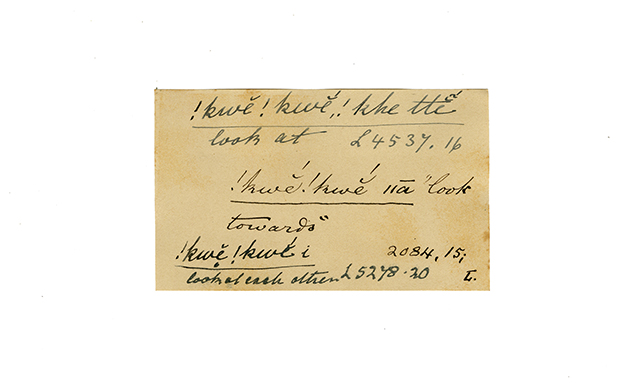 !kwĕ! kwĕ́,! khe ttĕ̃
look at £4537.16
!kwĕ́!kwĕ́ ııā "look
towards"
!kwẹ̆!kwĕ́ i 2084,15;
look at each other £5278.20 L.